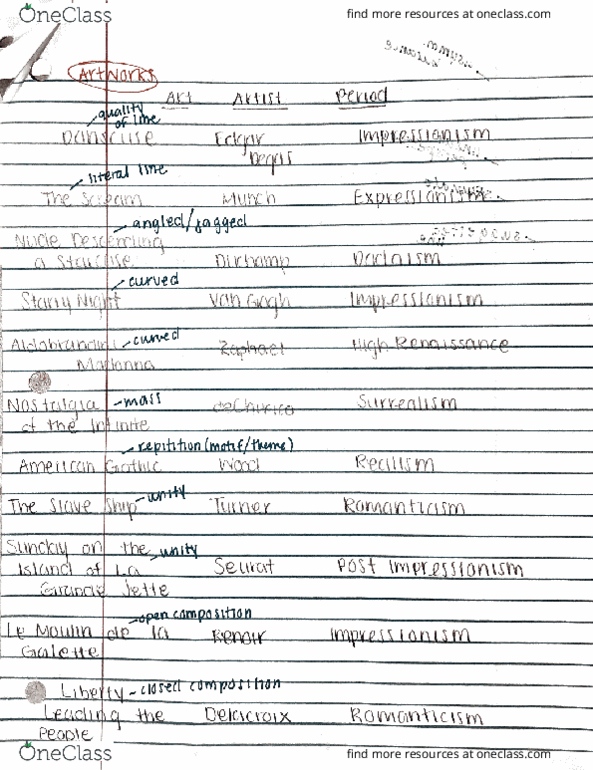 OneClass find more resources at oneclass.com
Artworks
Art Artist Period
quality
of line
Danseuse Edgar Impressionism
Degas
literal line
The Scream Munch Expressionism
angled/jagged
Nude Descending
a Staircase Duchamp Dadaism
curved
Starry Night Van Gogh Impressionism
Aldobrandini - curved Raphael High Renaissance
Madonna
Nostalgia - mass deChirico Surrealism
of the Infinite
repitition (motif/theme)
American Gothic Wood Realism
The Slave Ship - unity Turner Romanticism
Sunday on the unity
Island of La Seurat Post Impressionism
Grande Jette
open composition
Le Moulin de la Renoir Impressionism
Galette
Liberty - closed composition
Leading the Delacroix Romanticism
People
OneClass find more resources at oneclass.com